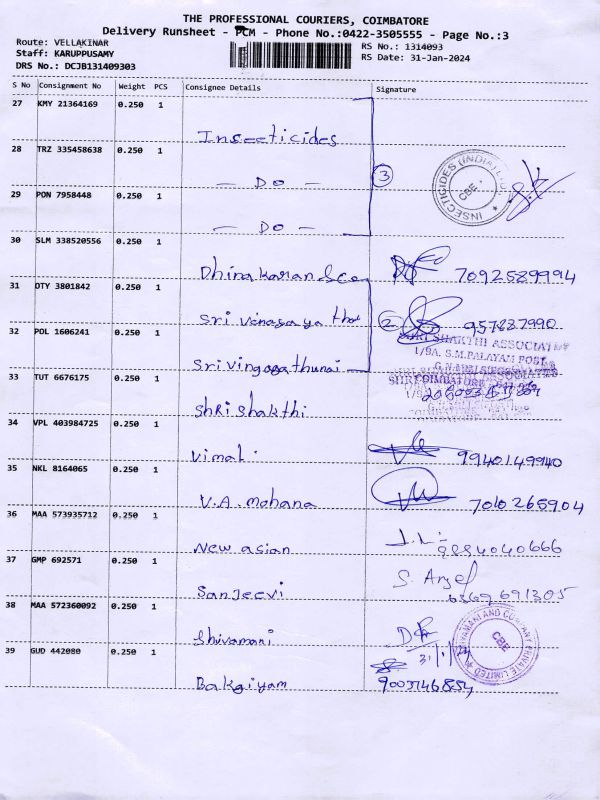 THE PROFESSIONAL COURIERS, COIMBATORE
Delivery Runsheet - PCM - Phone No.:0422-3505555 - Page No.:3
Route: VELLAKINAR
RS No.: 1314093
Staff: KARUPPUSAMY
RS Date: 31-Jan-2024
DRS No.: DCJB131409303
S No Consignment No Weight PCS Consignee Details Signature
27 KMY 21364169 0.250 1
Insecticides
28 TRZ 335458638 0.250 1
3
INSECTICIDES (INDIA) CBE
- DO -
29 PON 7958448 0.250 1
- DO -
30 SLM 338520556 0.250 1
Dhinakaran &co 7092589994
31 OTY 3801842 0.250 1
Sri Vinagaya 2 957887990
32 POL 1606241 0.250 1
SHRI SHAKTHI ASSOCIATES
1/9A. S.M.PALAYAM POST
33 TUT 6676175 0.250 1
Shri Shakthi
34 VPL 403984725 0.250 1
Vimal 9940149940
35 NKL 8164065 0.250 1
V.A. mohana 7010265904
36 MAA 573935712 0.250 1
New asian 9894040666
37 GMP 692571 0.250 1
Sanjeevi 6369691305
38 MAA 572360092 0.250 1
Shivamani
AND COMPANY PRIVATE LIMITED CBE
31/1/24
39 GUD 442080 0.250 1
Bakgiyam 9003146854